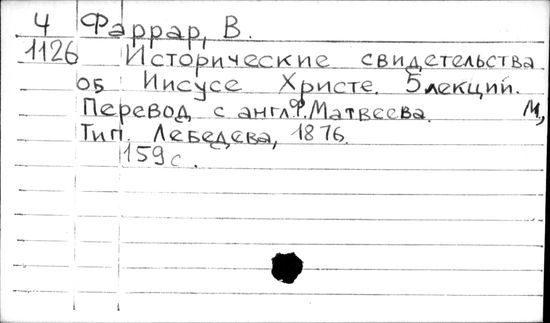 Ч Фаррар, В.
1126 Исторические свидетельства
об Иисусе Христе. 5 лекций.
Перевод с англ. Ф. Матвеева. М,
Тип. Лебедева, 1876.
159 с.